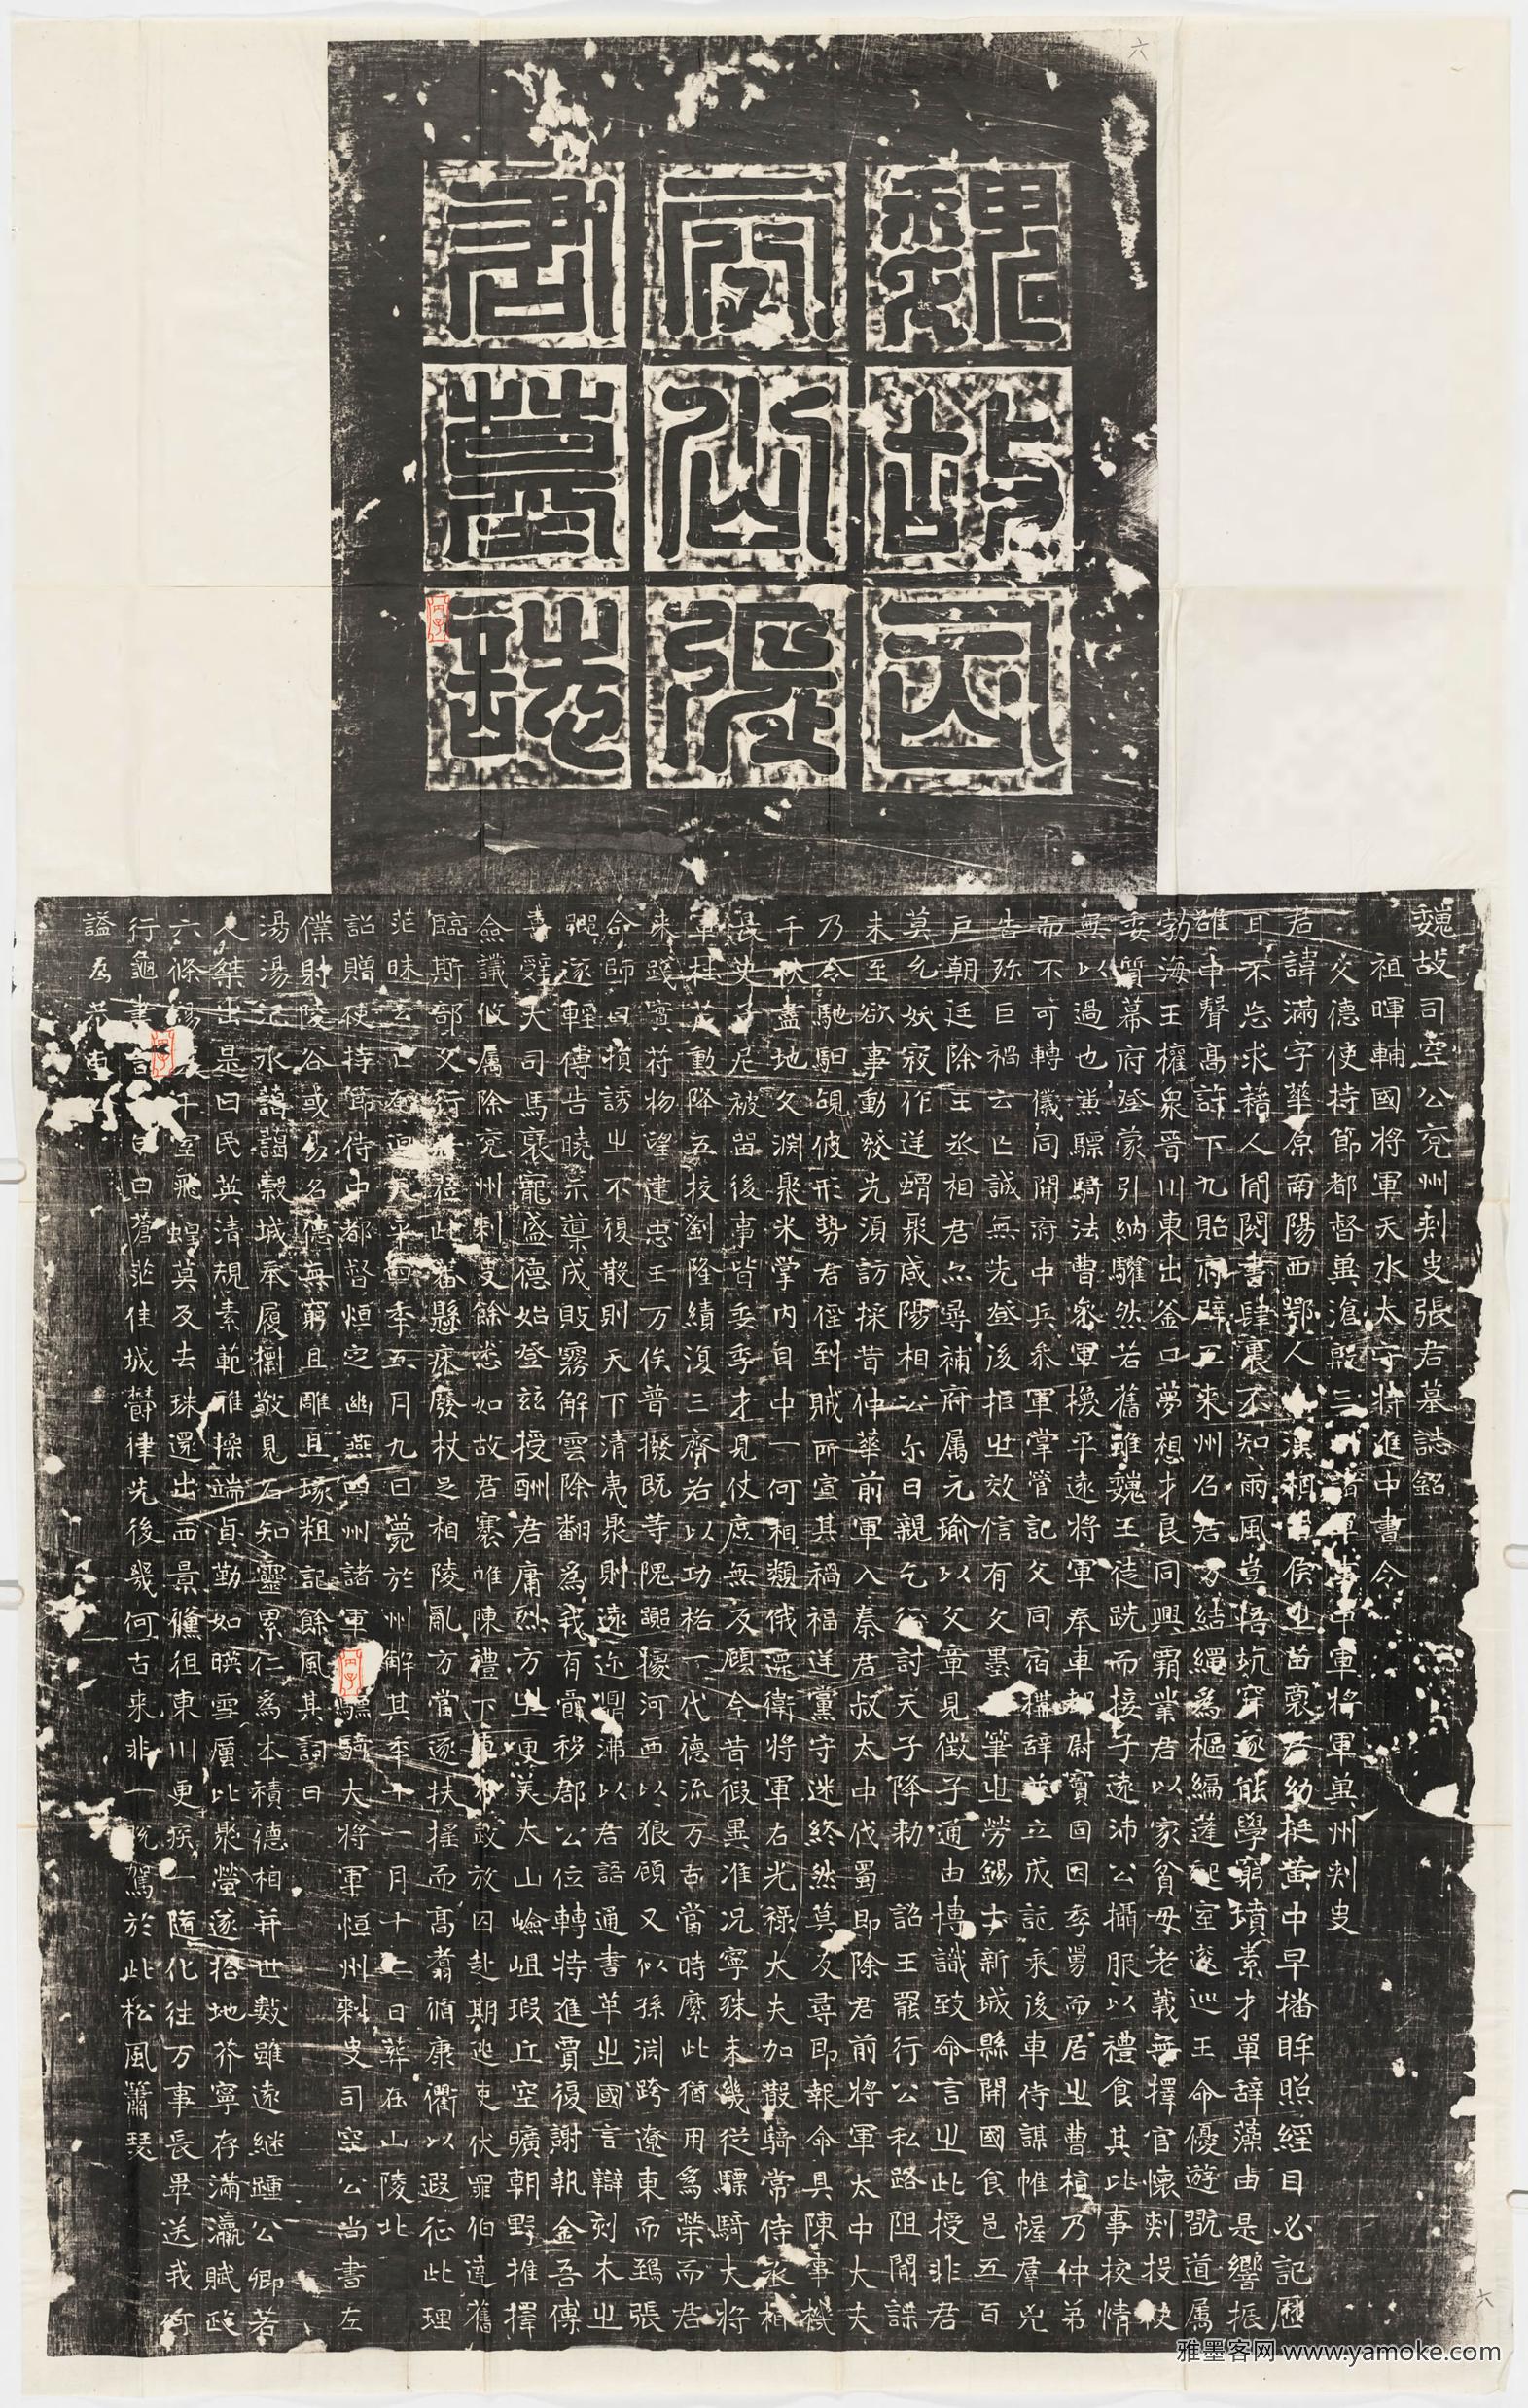 魏故司
空公張
君墓誌
六
魏故司空公兗州刺史張君墓誌銘
祖暉輔國將軍天水太守特進中書令
父德使持節都督冀滄殷三諸軍事中軍將軍冀州刺史
君諱滿字華原南陽西鄂人漢相留侯之苗裔君幼挺黃中早播眸照經目必記歷
耳不忘求藉人閒閱書肆裏不知雨風豈悟坑穽遂能學窮墳素才單辞藻由是響振
雒中聲高許下九貽府辟五來州召君方結繩為樞編蓬起室逡巡王命優遊翫道属
勃海王權眾晉川東出釜口夢想才良同興霸業君以家貧母老義無擇官懷剡投快
委質幕府登蒙引納驩然若舊雖魏王徒跣而接子遠沛公攝服以禮食其比事校情
無以過也驃騎法曹參軍換平遠將軍奉車都尉竇固因季舅而居之曹植乃仲弟
而不可轉儀同開府中兵參軍掌管記父同宿構辞若立成託乘後車侍謀帷幄羣兇
告殄巨禍云亡誠無先登後拒之效信有文墨筆之勞錫土新城縣開國食邑五百
戶朝廷除王丞相君尒尋補府属元瑜以文章見徵子通由博識致命言之此授非君
莫允妖寇作逆蝟聚咸陽相公尒日親乞行討天子降勅 詔王罷行公私路阻閒諜
未至欲事動發先須訪採昔仲華前軍入秦君叔太中伐蜀即除君前將軍太中大夫
乃令馳馹覘彼形勢君俓到賊所宣其禍福逆黨守迷終然莫反尋即報命具陳事機
千伏盡地文渊聚米掌內目中一何相類俄遷衛將軍右光祿大夫加散騎常侍丞相
長史尼被留後事皆委季才見仗庶無反顧今昔假異准況寧殊未幾從驃騎大將
軍杜茂勳降五校劉隆續湏三齊若以功格一代德流万古當時縻此猶用為榮而君
來踐寔苻物望建忠王万俟普撥既等隗囂擾河西以狼顧又似孫渊跨遼東而鵄張
命師日損誘之不復散則天下清夷聚則遠迩鼎沸以君語通書革之國言辯刻木之
鄉遂輕傳告曉示導成敗霧解雲除翻為我有爵移郡公位轉特進賈復謝執金吾傅
喜辤大司馬褒寵盛德始登茲授酬君庸烈方之更美太山嶮岨瑕丘空曠朝野推擇
僉議攸属除兗州刺史餘悉如故君褰帷陳禮下車布政放囚赴期迯吏伏罪伯達舊
臨斯部文行蒞此蕃懸床廢杖足相陵亂方當逐扶搖而高翥循康衢以遐征此理
茫昧云亡奄天平四年五月九日薨於州廨其年十一月十二日葬在山陵北
詔贈使持節侍中都督恒定幽燕四州諸軍驃騎大將軍恒州刺史司空公尚書左
僕射陵谷或易名德無窮且雕且琢粗記餘風其詞曰
湯湯汜水藹藹穀城奉履摛敬見石知靈累仁為本積德相并世數雖遠継踵公卿若
人桀出是曰民英清規素範雅操端貞勤如暎雪厲比聚螢遂拾地芥寧存滿瀛賦政
六條揚千室飛蝗莫及去珠還出西景儵徂東川更疾一隨化往万事長畢送我何
行龜書言日白蒼茫佳城欝律先後幾何古來非一既駕於此松風蕭瑟
謚為恭惠
六
雅墨客网 www.yamoke.com